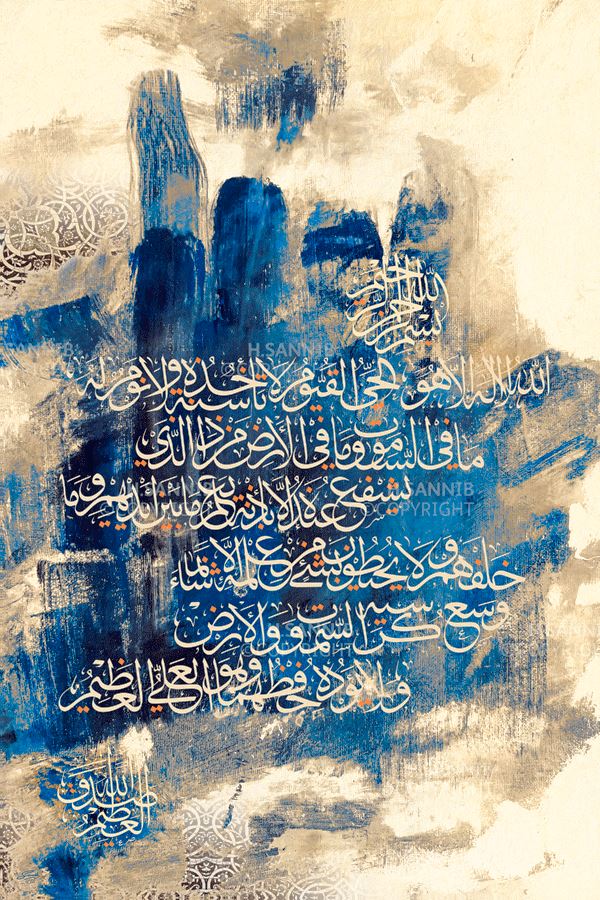 بسم الله الرحمن الرحيم
الله لا إله إلا هو الحي القيوم لا تأخذه سنة ولا نوم له
ما في السموت وما في الأرض من ذا الذي
يشفع عنده إلا بإذنه يعلم ما بين أيديهم وما
خلفهم ولا يحيطون بشيء من علمه إلا بما شاء
وسع كرسيه السموت والأرض
ولا يؤده حفظهما وهو العلي العظيم
صدق الله العظيم
H.SANNIB
COPYRIGHT